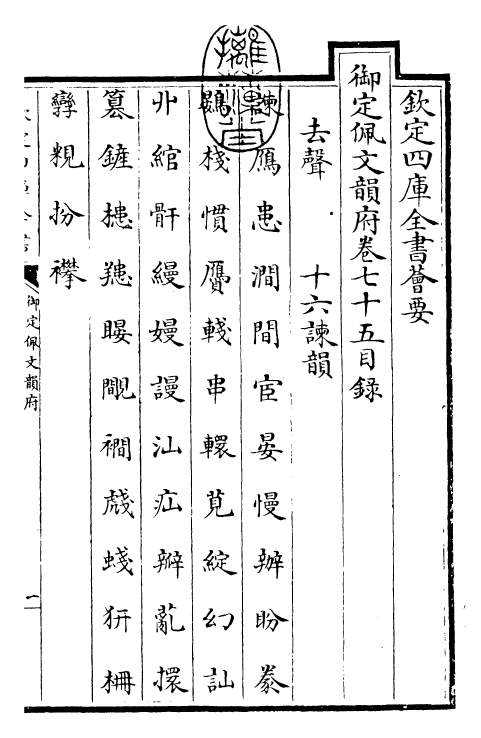 欽定四庫全書薈要
御定佩文韻府卷七十五目錄
去聲 十六諫韻
諫鴈患澗間宦晏慢辦盼豢
鷃棧慣贗輚串轘莧綻幻訕
丱綰骭縵嫚謾汕疝瓣擐
篡鏟槵覸襉虥柵
孿粯扮襻
御定佩文韻府
一